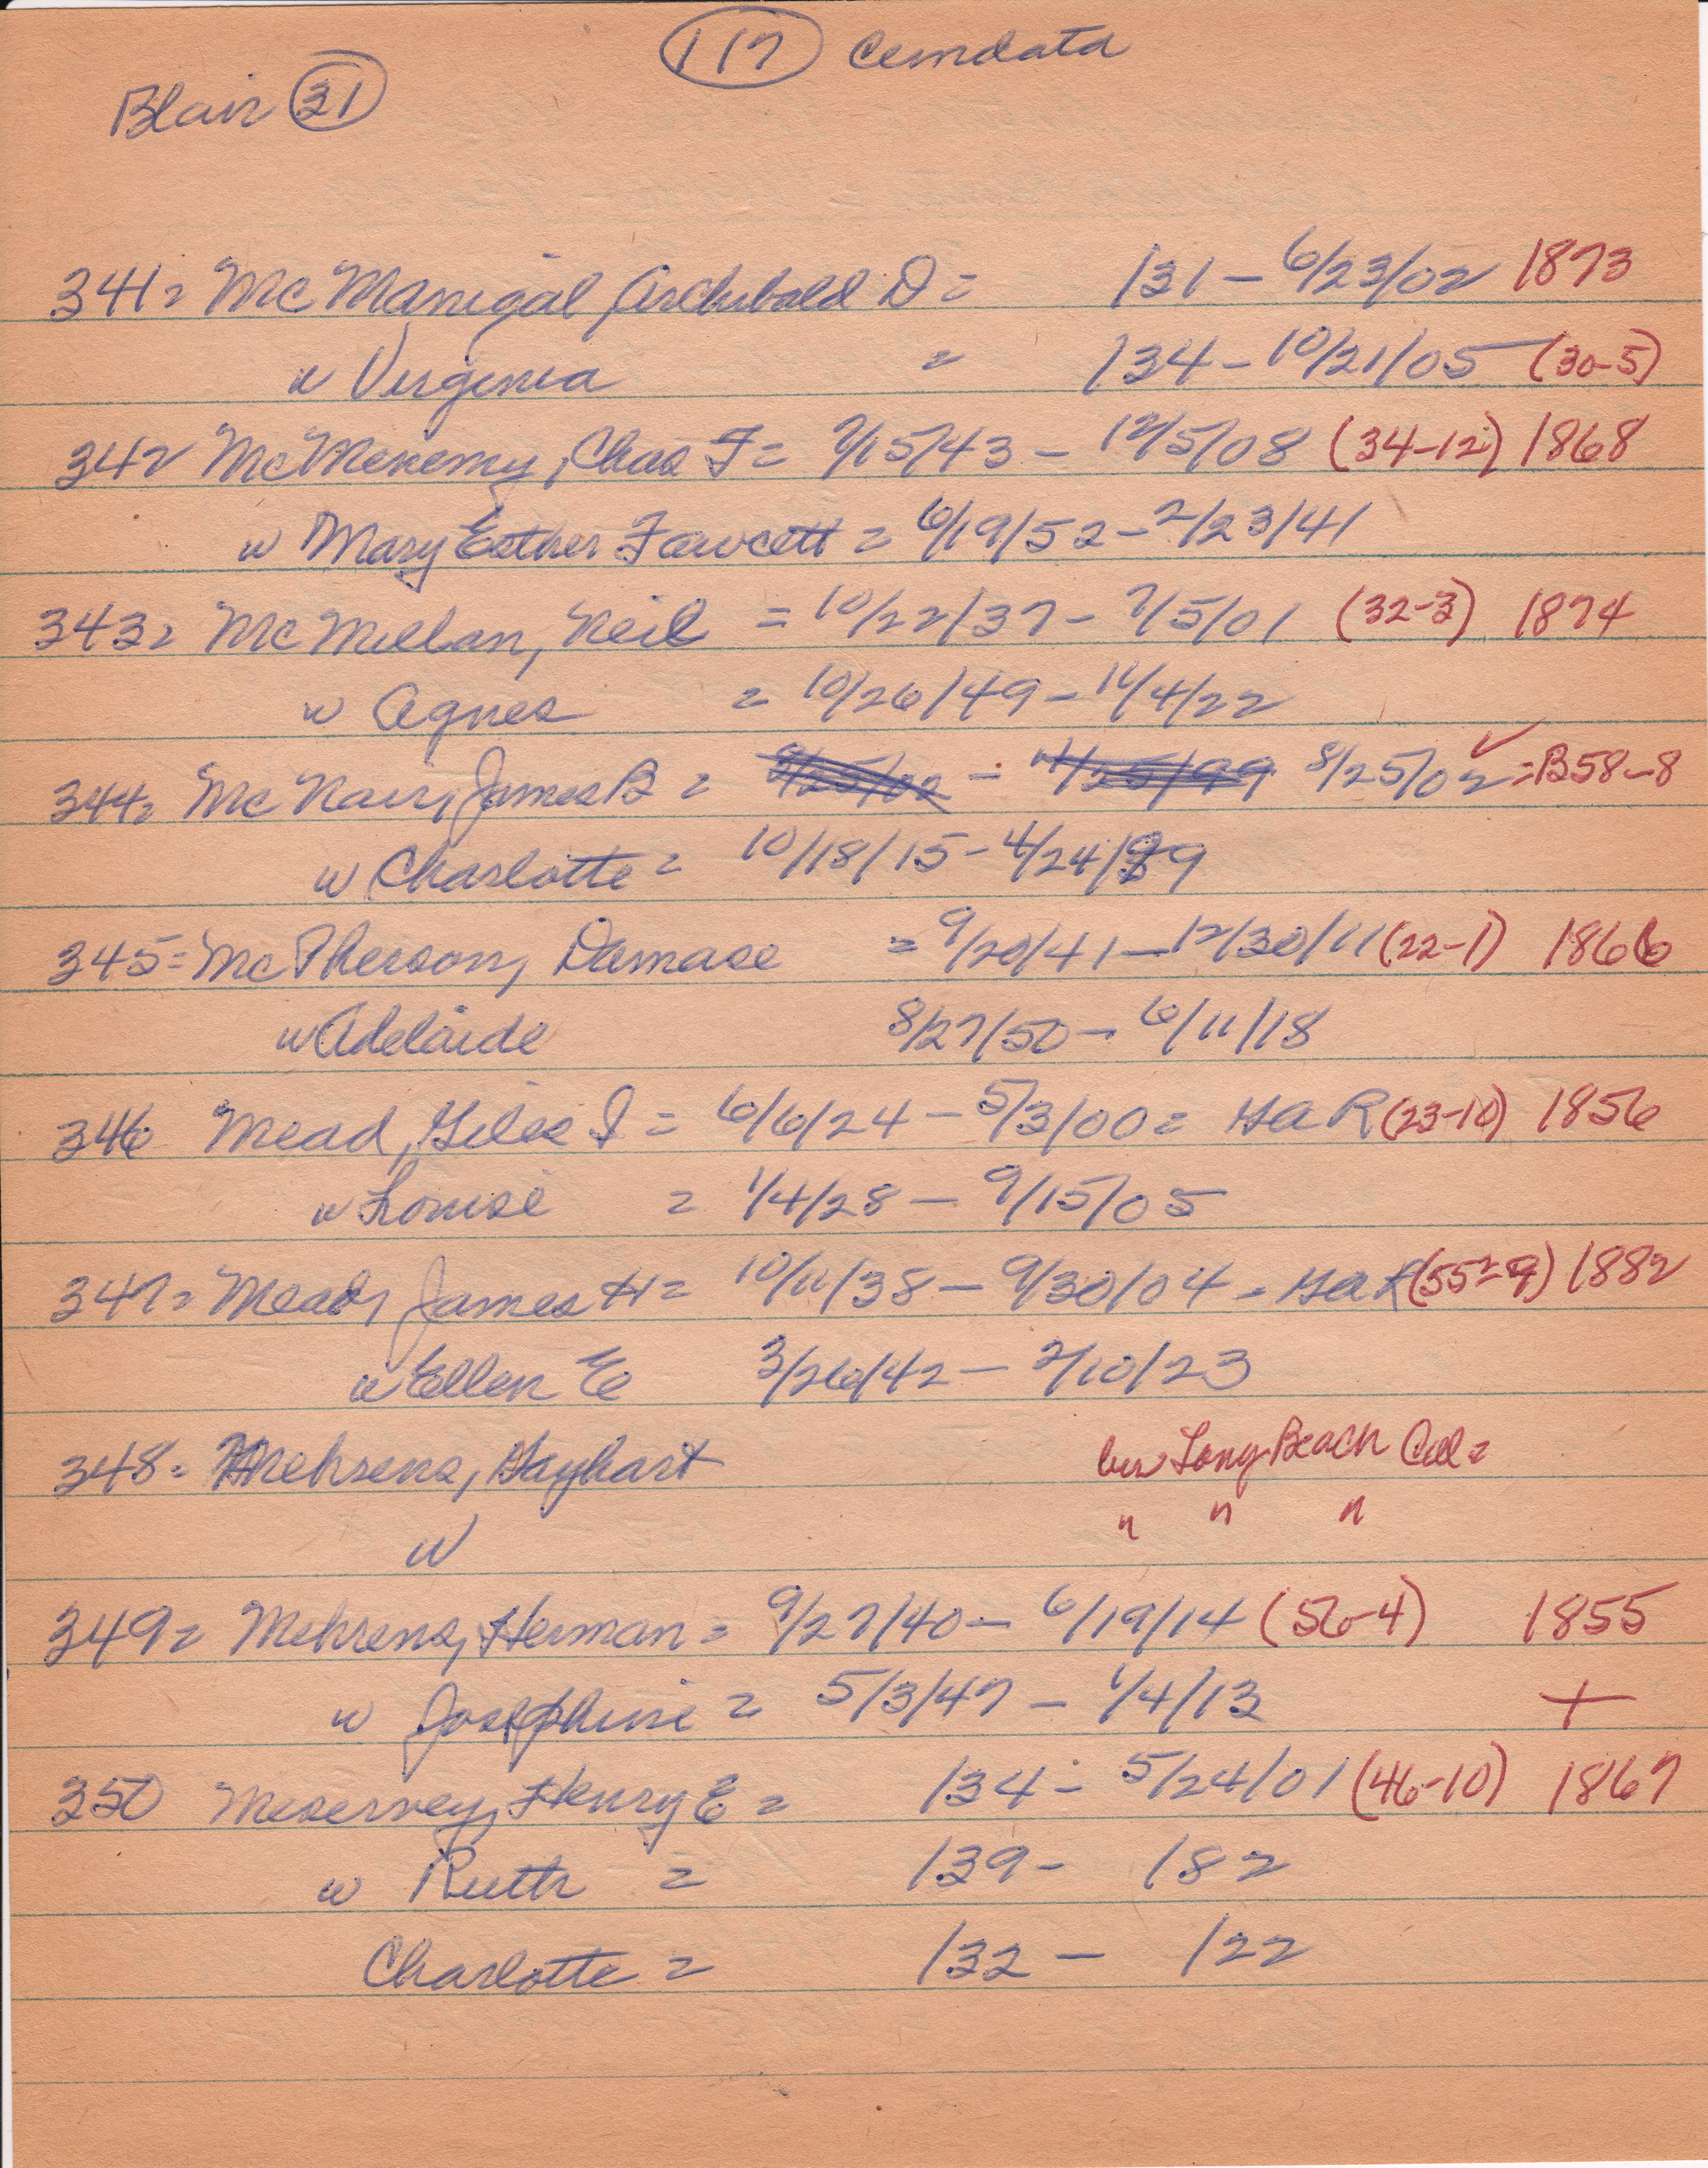 (117) Cemdata
Blair (31)
341= McManigal, Archibald D = /31 - 6/23/02 1873
w Virginia = /34 - 10/21/05 (30-5)
342 McMenemy, Chas F = 7/15/43 - 12/5/08 (34-12) 1868
w Mary Esther Fawcett = 6/19/52 - 2/23/41
343= McMillan, Neil = 10/22/37 - 7/5/01 (32-3) 1874
w Agnes = 10/26/49 - 11/4/22
344= McNair, James B = 8/25/02 - 11/25/99 8/25/02 ✓ = B58-8
w Charlotte = 10/18/15 - 4/24/99
345= McPherson, Damase = 9/20/41 - 12/30/11 (22-1) 1866
w Adelaide 8/27/50 - 6/11/18
346 Mead, Giles I = 6/6/24 - 5/3/00 = GAR (23-10) 1856
w Louise = 1/4/28 - 9/15/05
347= Mead, James H = 10/11/38 - 9/30/04 - GAR (55-9) 1882
w Ellen E 3/26/42 - 2/10/23
348= Mehrens, Gayhart bur Long Beach Cal =
w " " "
349= Mehrens, Herman = 9/27/40 - 6/19/14 (56-4) 1855
w Josephine = 5/3/47 - 1/4/13 +
350 Meservey, Henry E = /34 - 5/24/01 (46-10) 1867
w Ruth = /39 - /82
Charlotte = /32 - /22